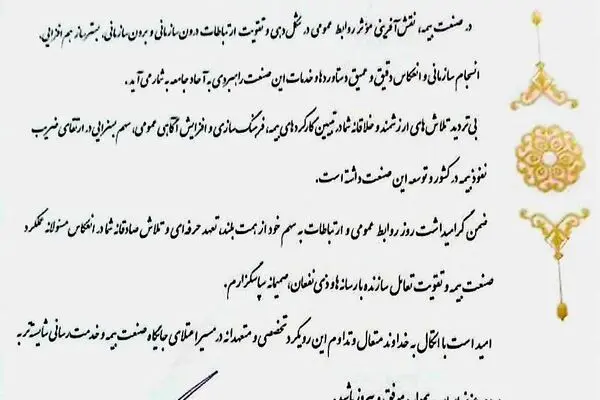 در صنعت بیمه، نقش‌آفرینی مؤثر روابط عمومی در شکل‌دهی و تقویت ارتباطات درون سازمانی و برون سازمانی، بسترساز هم‌افزایی،
انسجام سازمانی و انعکاس دقیق و عمیق دستاوردها و خدمات این صنعت راهبردی به آحاد جامعه به شمار می‌آید.
بی‌تردید تلاش‌های ارزشمند و خلاقانه شما در تبیین کارکردهای بیمه، فرهنگ‌سازی و افزایش آگاهی عمومی، سهم بسزایی در ارتقای ضریب
نفوذ بیمه در کشور و توسعه این صنعت داشته است.
ضمن گرامیداشت روز روابط عمومی و ارتباطات به سهم خود از همت بلند، تعهد حرفه‌ای و تلاش صادقانه شما در انعکاس مسئولانه عملکرد
صنعت بیمه و تقویت تعامل سازنده با رسانه‌ها و ذی‌نفعان، صمیمانه سپاسگزارم.
امید است با اتکال به خداوند متعال و تداوم این رویکرد تخصصی و متعهدانه در مسیر اعتلای جایگاه صنعت بیمه و خدمت‌رسانی شایسته‌تر به
موفق و پیروز باشید.